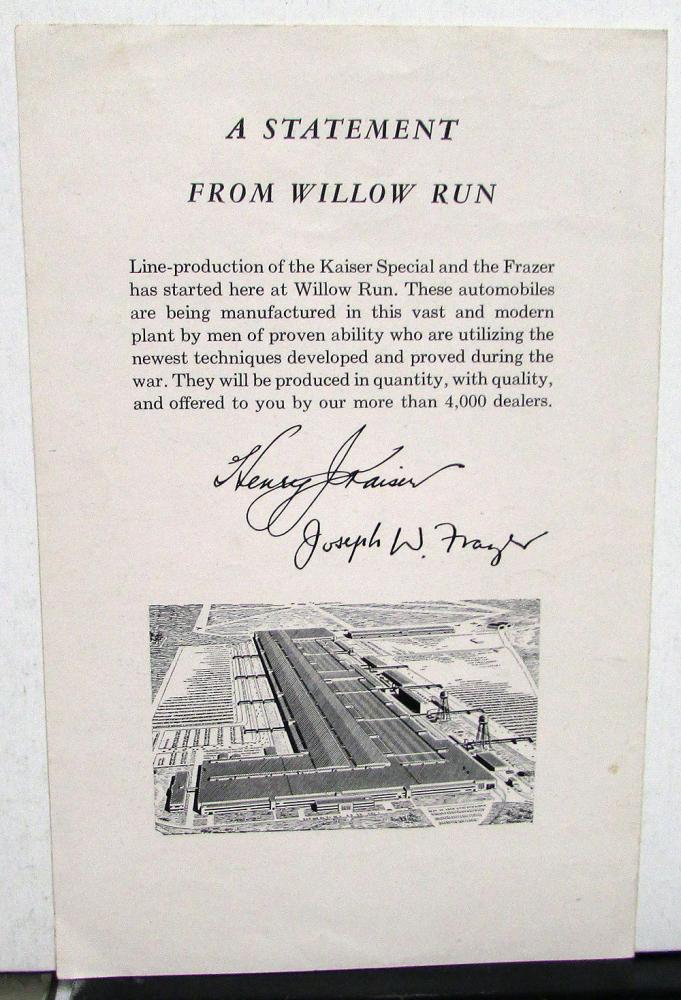 A STATEMENT
FROM WILLOW RUN
Line-production of the Kaiser Special and the Frazer
has started here at Willow Run. These automobiles
are being manufactured in this vast and modern
plant by men of proven ability who are utilizing the
newest techniques developed and proved during the
war. They will be produced in quantity, with quality,
and offered to you by our more than 4,000 dealers.
Henry J Kaiser
Joseph W. Frazer